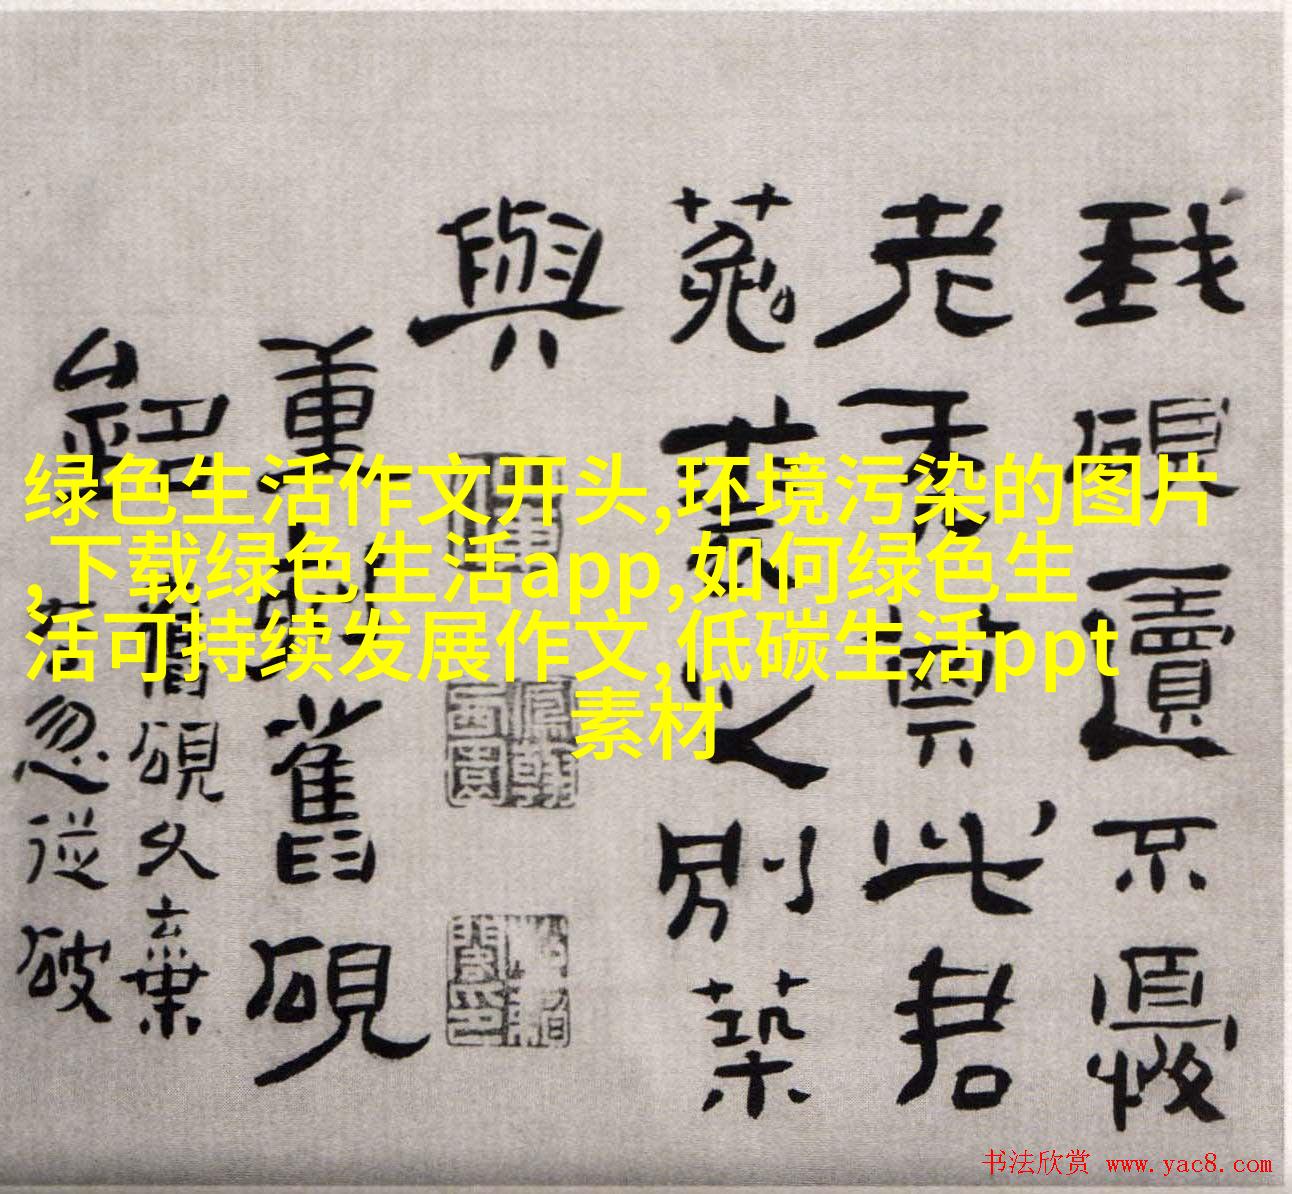 绿色生活作文开头,环境污染的图片
,下载绿色生活app,如何绿色生
活可持续发展作文,低碳生活ppt
素材
我硯遺不憂
老禿此君
菟裘別築
與
重舊硯
銘
舊硯久棄
忽從破
书法欣赏 www.yac8.com